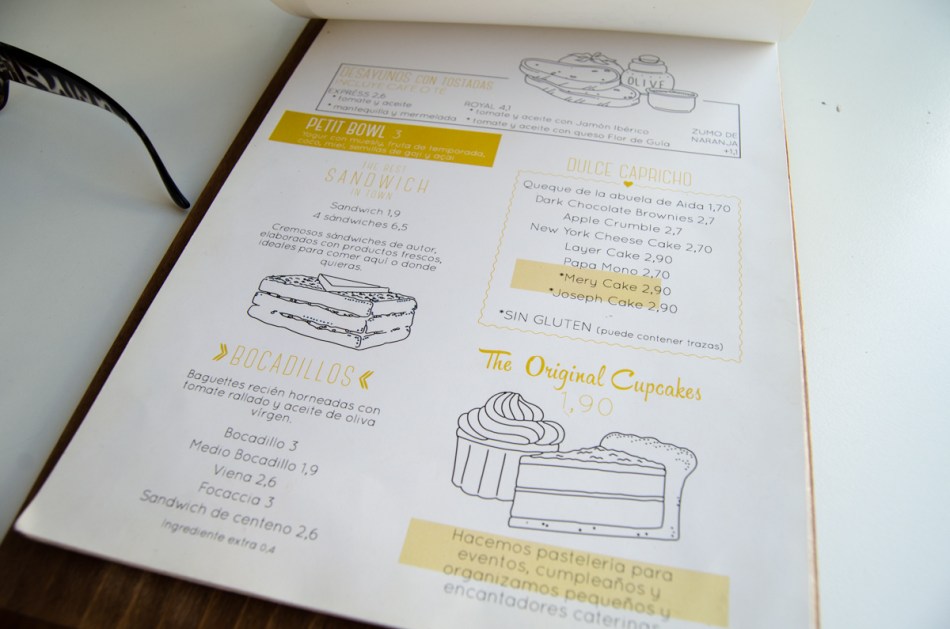 DESAYUNOS CON TOSTADAS
INCLUYE CAFÉ O TÉ
EXPRÉSS 2,6
* tomate y aceite
* mantequilla y mermelada
ROYAL 4,1
* tomate y aceite con Jamón Ibérico
* tomate y aceite con queso Flor de Guía
ZUMO DE
NARANJA
+1,1
OLIVE
PETIT BOWL 3
Yogur con muesly, fruta de temporada,
coco, miel, semillas de goji y açai.
THE BEST
SANDWICH
IN TOWN
Sandwich 1,9
4 sándwiches 6,5
Cremosos sándwiches de autor,
elaborados con productos frescos,
ideales para comer aquí o donde
quieras.
»BOCADILLOS«
Baguettes recién horneadas con
tomate rallado y aceite de oliva
virgen.
Bocadillo 3
Medio Bocadillo 1,9
Viena 2,6
Focaccia 3
Sandwich de centeno 2,6
Ingrediente extra 0,4
DULCE CAPRICHO
Queque de la abuela de Aida 1,70
Dark Chocolate Brownies 2,7
Apple Crumble 2,7
New York Cheese Cake 2,70
Layer Cake 2,90
Papa Mono 2,70
*Mery Cake 2,90
*Joseph Cake 2,90
*SIN GLUTEN (puede contener trazas)
The Original Cupcakes
1,90
Hacemos pastelería para
eventos, cumpleaños y
organizamos pequeños y
encantadores caterings